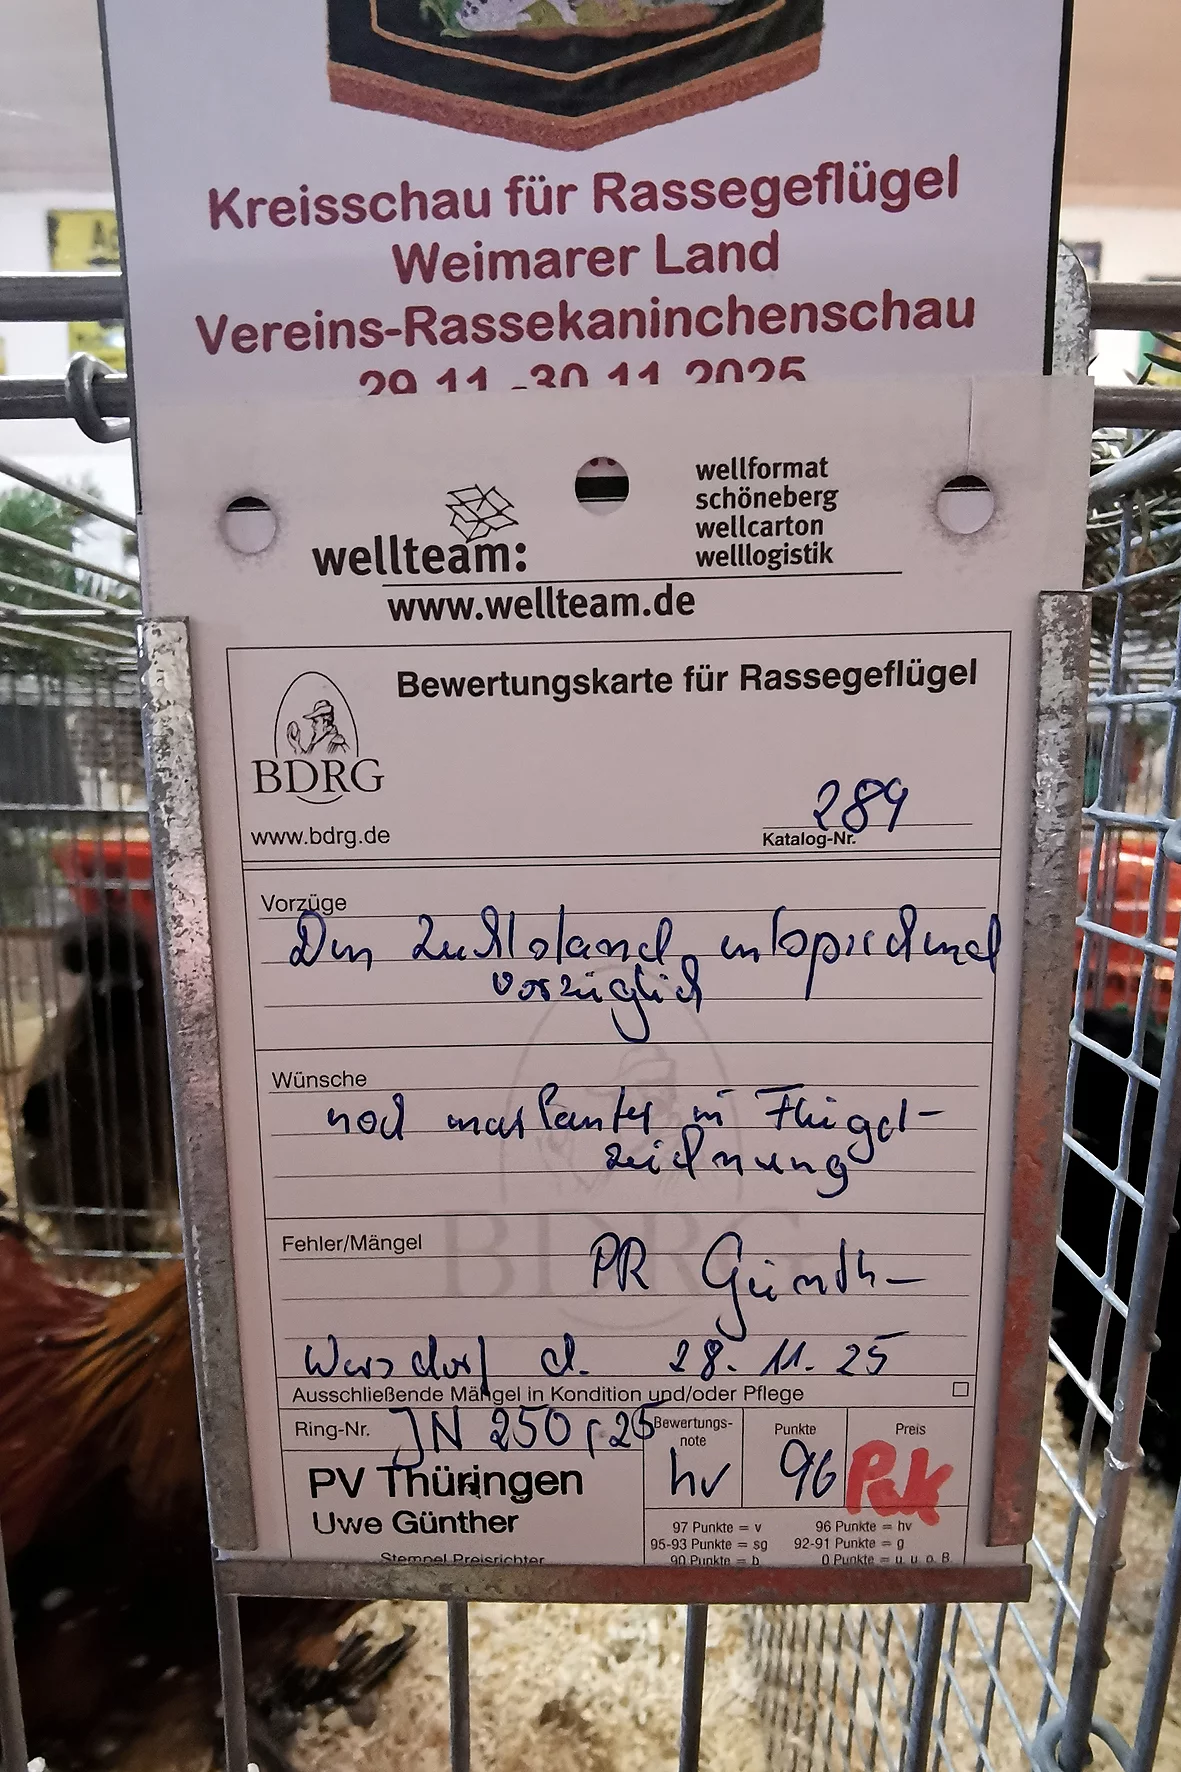 Kreisschau für Rassegeflügel
Weimarer Land
Vereins-Rassekaninchenschau
29.11.-30.11.2025
wellteam:
www.wellteam.de
wellformat
schöneberg
wellcarton
welllogistik
BDRG
www.bdrg.de
Bewertungskarte für Rassegeflügel
289
Katalog-Nr.
Vorzüge
Dem Zuchtstand entsprechend
vorzüglich
Wünsche
noch markanter in Flügel-
zeichnung
Fehler/Mängel
PR Günther
d. 28.11.25
Ausschließende Mängel in Kondition und/oder Pflege
Ring-Nr. JN 250, 25
PV Thüringen
Uwe Günther
Stempel Preisrichter
Bewertungs-
note
hv
Punkte
96
Preis
97 Punkte = v 96 Punkte = hv
95-93 Punkte = sg 92-91 Punkte = g
90 Punkte = b 0 Punkte = u, u, o. B.